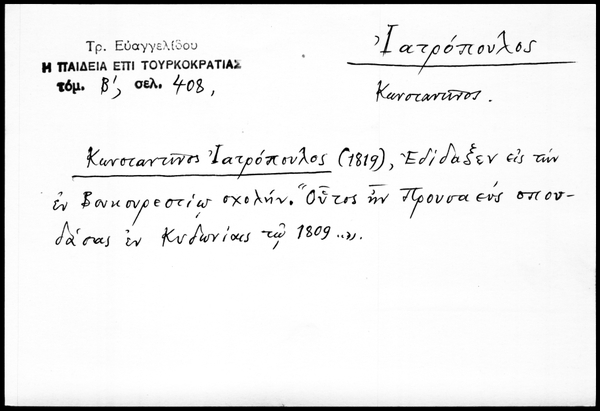 Τρ. Εὐαγγελίδου
Η ΠΑΙΔΕΙΑ ΕΠΙ ΤΟΥΡΚΟΚΡΑΤΙΑΣ
τόμ. Β', σελ. 408,
Ἰατρόπουλος
Κωνσταντῖνος.
Κωνσταντῖνος Ἰατρόπουλος (1819), Ἐδίδαξεν εἰς τὴν
ἐν Βουκουρεστίῳ σχολήν. "Οὗτος ἦν Προυσαεύς σπου-
δάσας ἐν Κυδωνίαις τῷ 1809 ..».